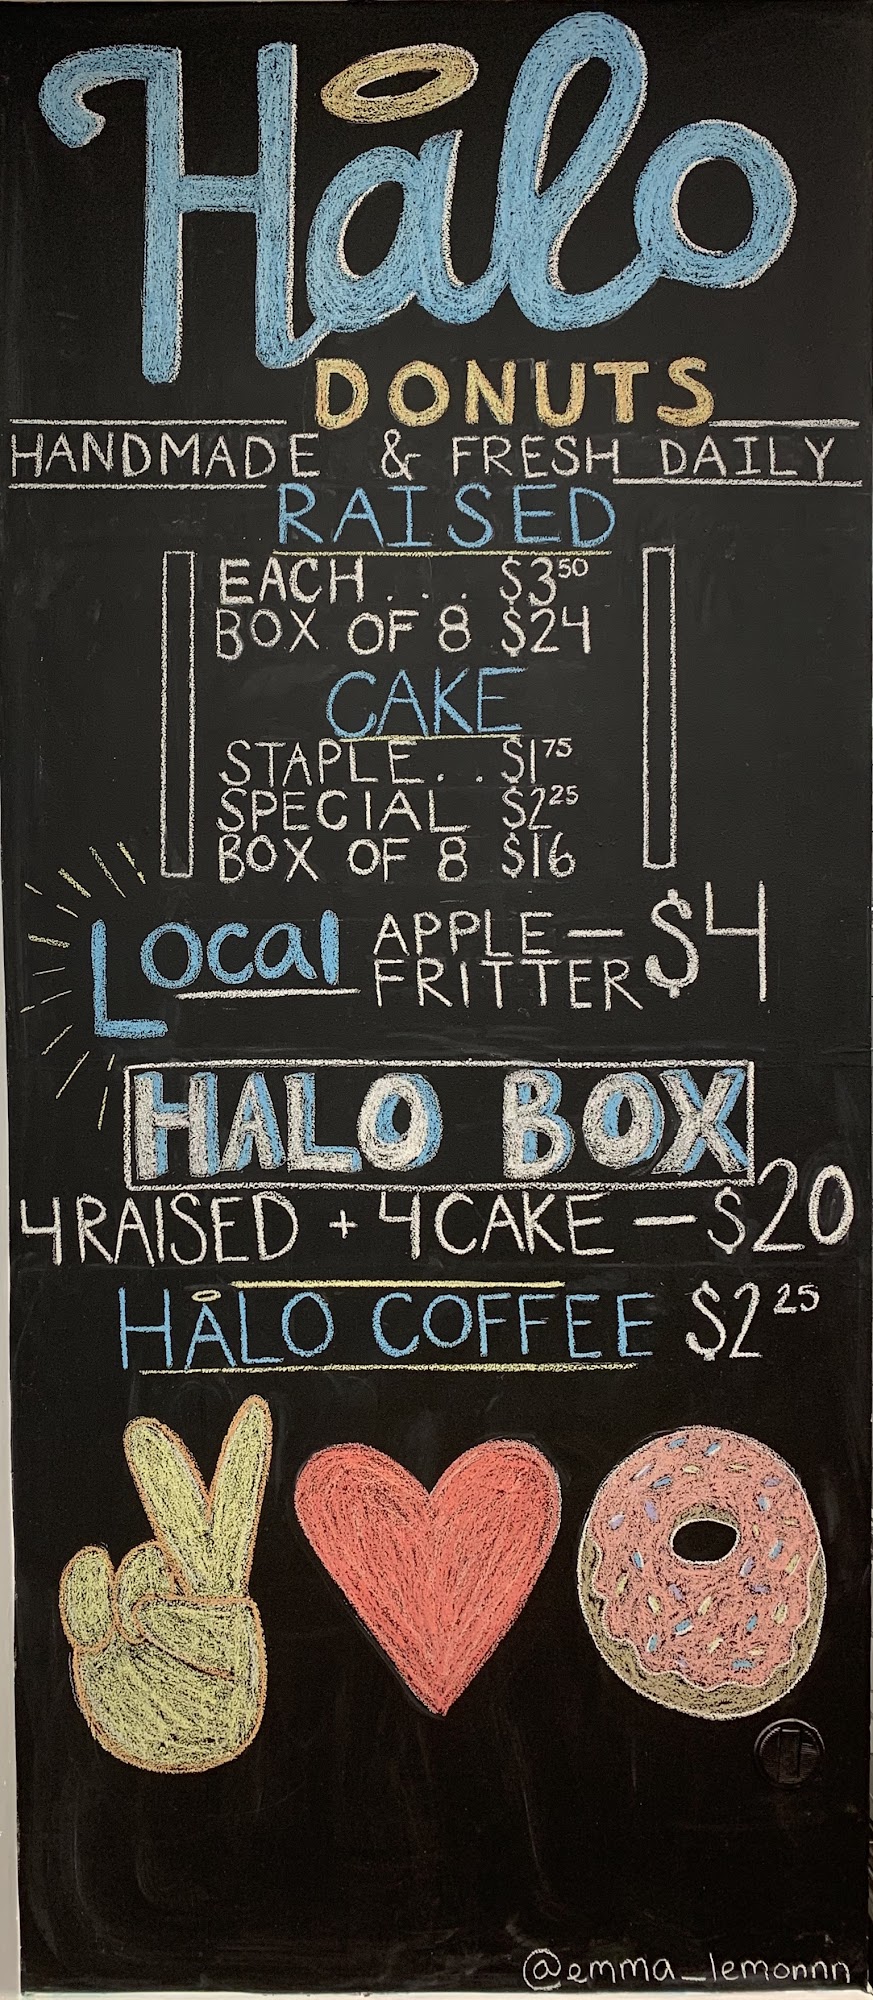 Halo
DONUTS
HANDMADE & FRESH DAILY
RAISED
EACH... $3.50
BOX OF 8 $24
CAKE
STAPLE.. $1.75
SPECIAL $2.25
BOX OF 8 $16
Local APPLE FRITTER — $4
HALO BOX
4 RAISED + 4 CAKE — $20
HALO COFFEE $2.25
@emma_lemonnn